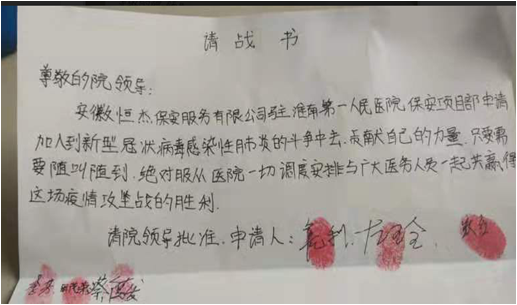 请战书
尊敬的院领导:
安徽恒杰保安服务有限公司驻淮南第一人民医院保安项目部申请
加入到新型冠状病毒感染性肺炎的斗争中去,贡献自己的力量.只要需
要随叫随到.绝对服从医院一切调度安排与广大医务人员一起共赢得
这场疫情攻坚战的胜利.
请院领导批准.申请人: